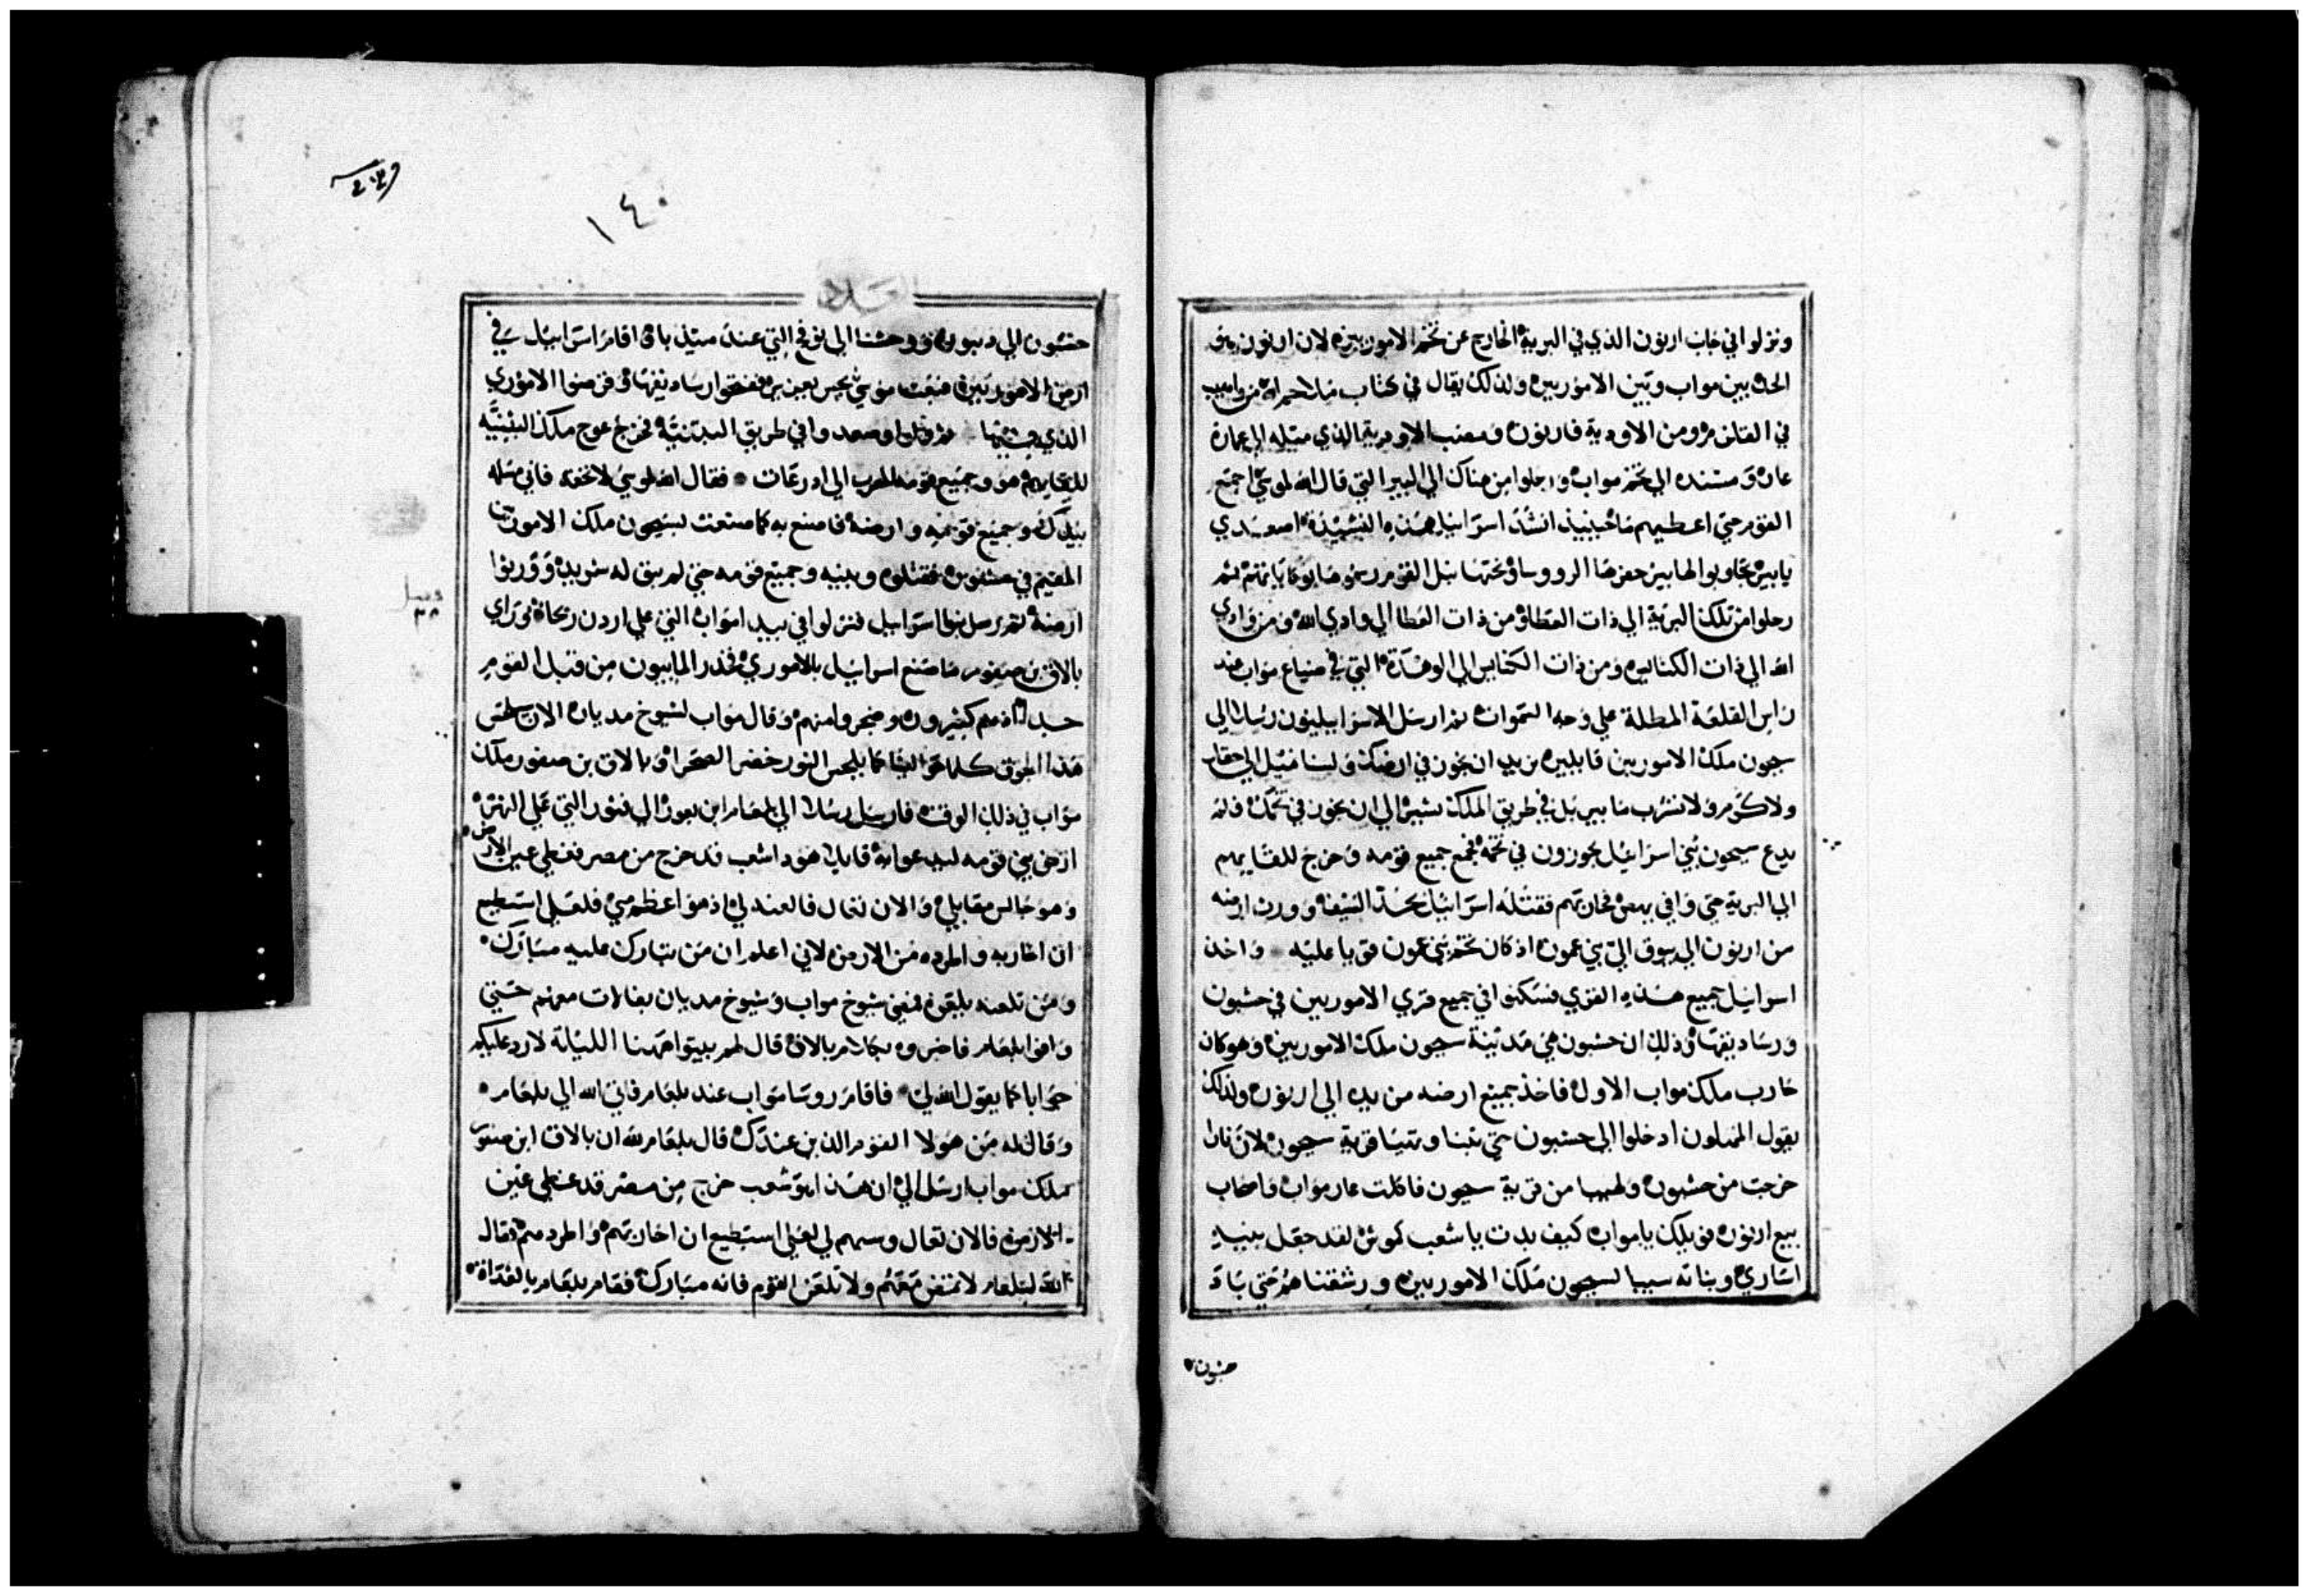 ونزلوا في جانب ارنون الذي في البرية الخارج عن تخم الاموريين لان ارنون هو
الحد بين مواب وبين الاموريين ولذلك يقال في كتاب ملاحم الله من واهب
في القلزم ومن الاودية فارنون ومصب الاودية الذي ميله الي عمارة
عار ومستنده الي تخم مواب ورحلوا من هناك الي البير التي قال الله لموسي اجمع
القوم حتي اعطيهم ما حينيذ انشد اسراييل هذه النشيدة اصعدي
يا بير تجاوبوا لها بير حفرها الرووسا ونحتها نبل القوم
رحلوا من تلك البرية الي ذات العطا ومن ذات العطا الي وادي الله ومن وادي
الله الي ذات الكنايس ومن ذات الكنايس الي الوهدة التي في ضياع مواب عند
راس القلعة المطلة علي وجه السموات ثم ارسل الاسراييليون رسلا الي
سيحون ملك الاموريين قايلين نريد ان نجوز في ارضك ولسنا نميل الي حقل
ولا كرم ولا نشرب ما بير بل في طريق الملك نسير الي ان نجوز في تخمك فلم
يدع سيحون بني اسراييل يجوزون في تخمه فجمع جميع قومه وخرج للقايهم
الي البرية حتي وافي يهص فحاربهم فقتله اسراييل بحد السيف وورث ارضه
من ارنون الي يبوق الي بني عمون اذ كان تخم بني عمون قويا عليه واخذ
اسراييل جميع هذه القري فسكنوا في جميع قري الاموريين في حشبون
ورساديقها وذلك ان حشبون هي مدينة سيحون ملك الاموريين وهو كان
حارب ملك مواب الاول فاخذ جميع ارضه من يده الي ارنون ولذلك
يقول الممثلون ادخلوا الي حشبون حتي تبنا وتهيا قرية سيحون لان نارا
خرجت من حشبون ولهيبا من قرية سيحون فاكلت عار مواب واصحاب
بيع ارنون فويلك يا مواب كيف بدت يا شعب كموش لقد جعل بنيه
اساري وبناته سبيا لسيحون ملك الاموريين ورشقناهم حتي باد
حشبون
١٤٠
العدد
حشبون الي ديبون ووحشنا الي نوفح التي عند ميدبا فاقام اسراييل في
ارض الاموريين فبعث موسي بجس يعزير ففتحوا رساديقها وقرضوا الاموري
الذي فيها ثم ولوا وصعدوا في طريق البثنية فخرج عوج ملك البثنية
للقايهم هو وجميع قومه للحرب الي ادرعات فقال الله لموسي لا تخفه فاني مسلمه
بيدك وجميع قومه وارضه فاصنع به كما صنعت بسيحون ملك الاموريين
المقيم في حشبون فقتلوه وبنيه وجميع قومه حتي لم يبق له شريد وورثوا
ارضه ثم رحل بنوا اسراييل فنزلوا في بيدا مواب التي علي اردن ريحا فراي
بالاق بن صفور ما صنع اسراييل بالاموري فحذر المابيون من قبل القوم
جدا اذ هم كثيرون وضجروا منهم وقال مواب لشيوخ مديان الان يلحس
هذا الجوق كلما حوالينا كما يلحس الثور خضر الصحرا وبالاق بن صفور ملك
مواب في ذلك الوقت فارسل رسلا الي بلعام ابن بعور الي فثور التي علي النهر
ارض بني قومه ليدعوا به قايلا هوذا شعب قد خرج من مصر فغطي عين الارض
وهو جالس مقابلي والان تعال فالعنه لي اذ هو اعظم مني فلعلي استطيع
ان احاربه واطرده من الارض لاني اعلم ان من تبارك عليه مبارك
ومن تلعنه يلعن فمضي شيوخ مواب وشيوخ مديان بفالات معهم حتي
وافوا بلعام فاخبروه بكلام بالاق قال لهم بيتوا ههنا الليلة لارد عليكم
جوابا كما يقول الله لي فاقام روسا مواب عند بلعام فاتي الله الي بلعام
وقال له من هولا القوم الذين عندك قال بلعام لله ان بالاق ابن صفور
ملك مواب ارسل الي ان هذا هو شعب خرج من مصر قد غطي عين
الارض فالان تعال وسبهم لي لعلي استطيع ان احاربهم واطردهم فقال
الله لبلعام لا تمض معهم ولا تلعن القوم فانه مبارك فقام بلعام بالغداة
فصل
٣٨